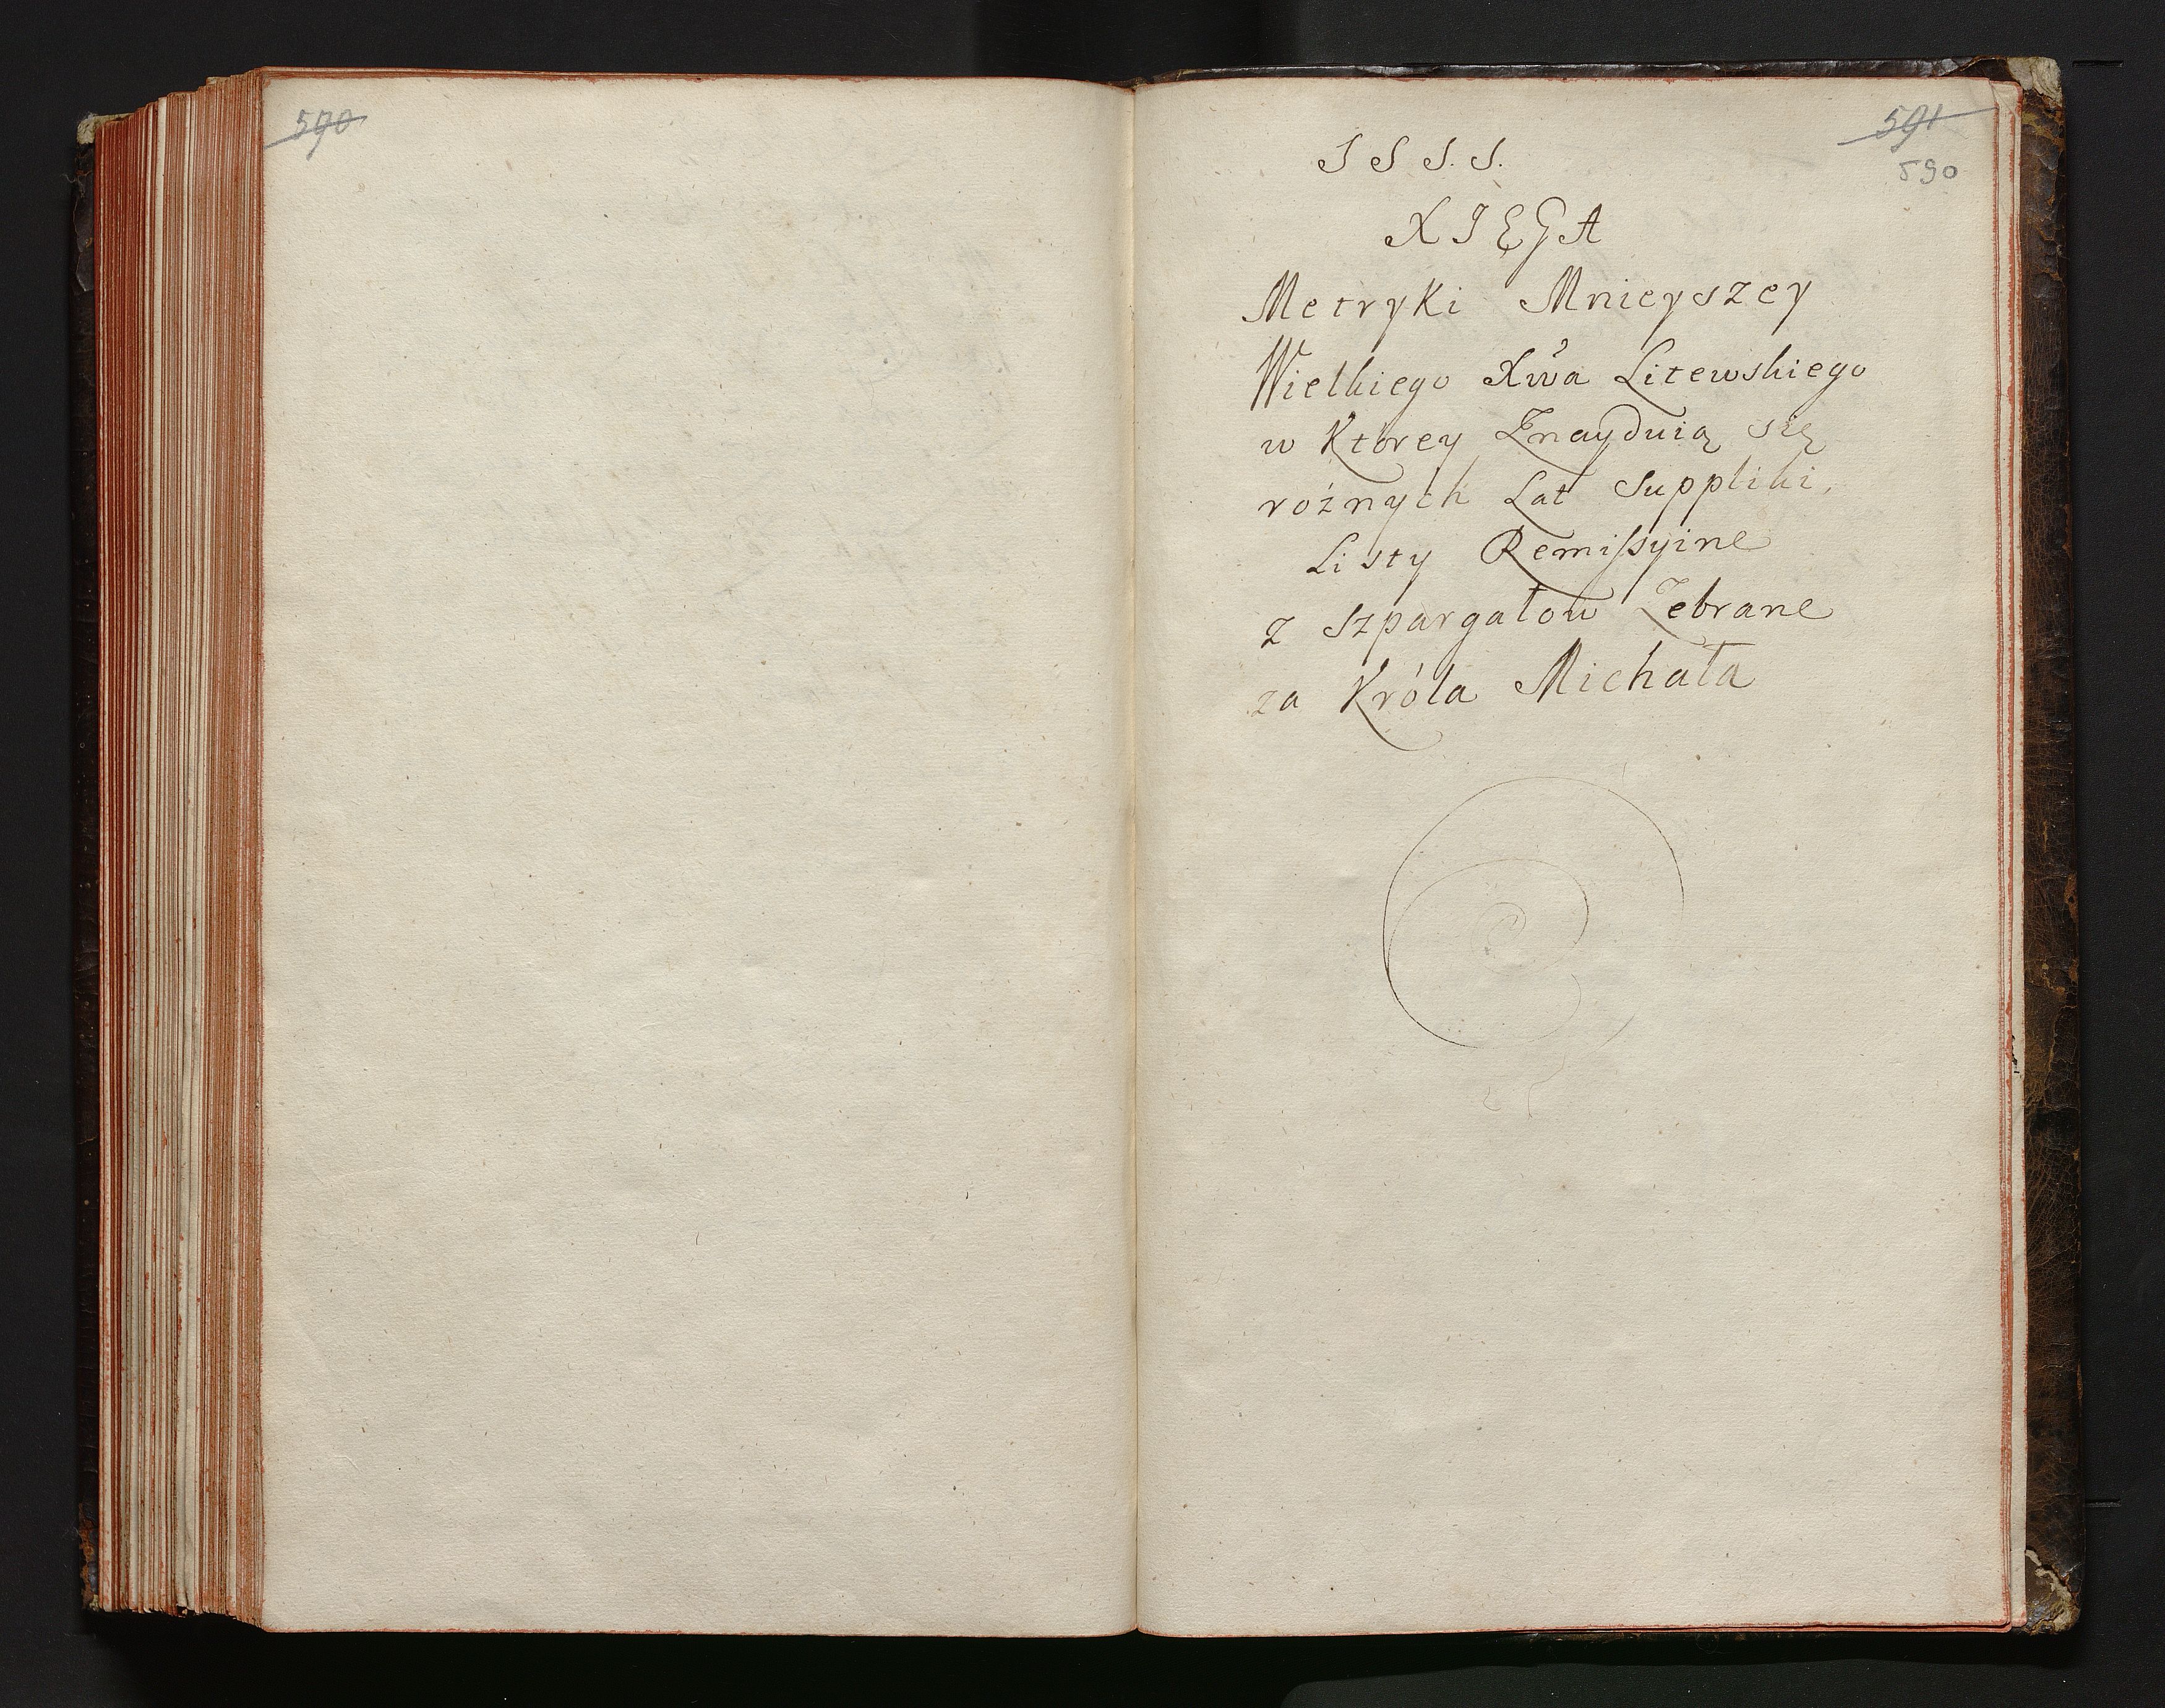 590
591
590
S S S. S.
XIĘGA
Metryki Mnieyszey
Wielkiego Xwa Litewskiego
w Ktorey Znayduią się
rożnych Lat Suppliki,
Listy Remiſsyine
z Szpargałow Zebrane
za Króla Michała